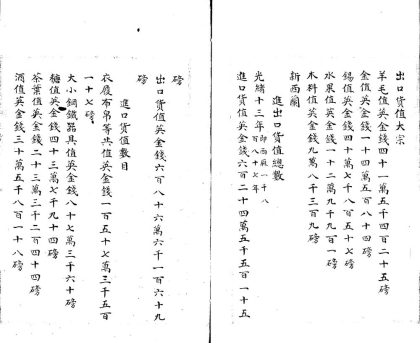 出口貨值大宗
羊毛值英金錢四十一萬五千四百二十五磅
金值英金錢一十四萬五百八十四磅
錫值英金錢四十萬七千八百五十七磅
水果值英金錢一十二萬九千九百一磅
木料值英金錢九萬八千三百九磅
新西蘭
進出口貨值總數
光緒十三年即西厯一千八百八十七年
進口貨值英金錢六百二十四萬五千五百一十五
磅
出口貨值英金錢六百八十六萬六千一百六十九
磅
進口貨值數目
衣履布帛等共值英金錢一百五十七萬三千五百
一十七磅
大小鋼鐵器具值英金錢八十七萬三千六十磅
糖值英金錢四十三萬七千九十四磅
茶葉值英金錢二十三萬三千二百四十四磅
酒值英金錢三十萬五千八百一十八磅